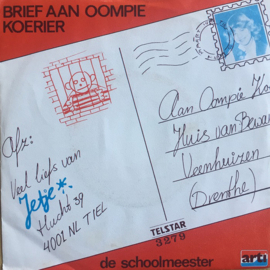 BRIEF AAN OOMPIE
KOERIER
Aan Oompie Ko
Huis van Bewa
Veenhuizen
(Drenthe)
Afz:
Veel liefs van
Jetje*
Hucht 39
4001 NL TIEL
TELSTAR
3279
de schoolmeester
arti